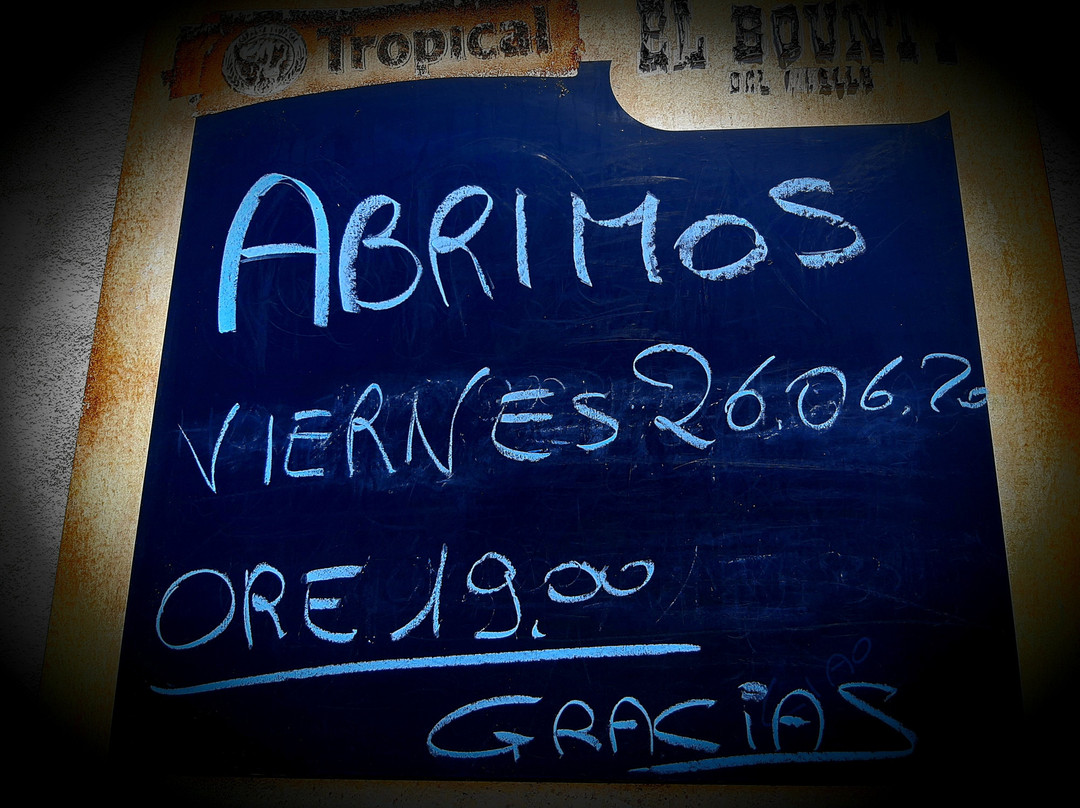 Tropical
EL BOUNTY
DEL MUELLE
ABRIMOS
VIERNES 26.06.20
ORE 19.00
GRACIAS